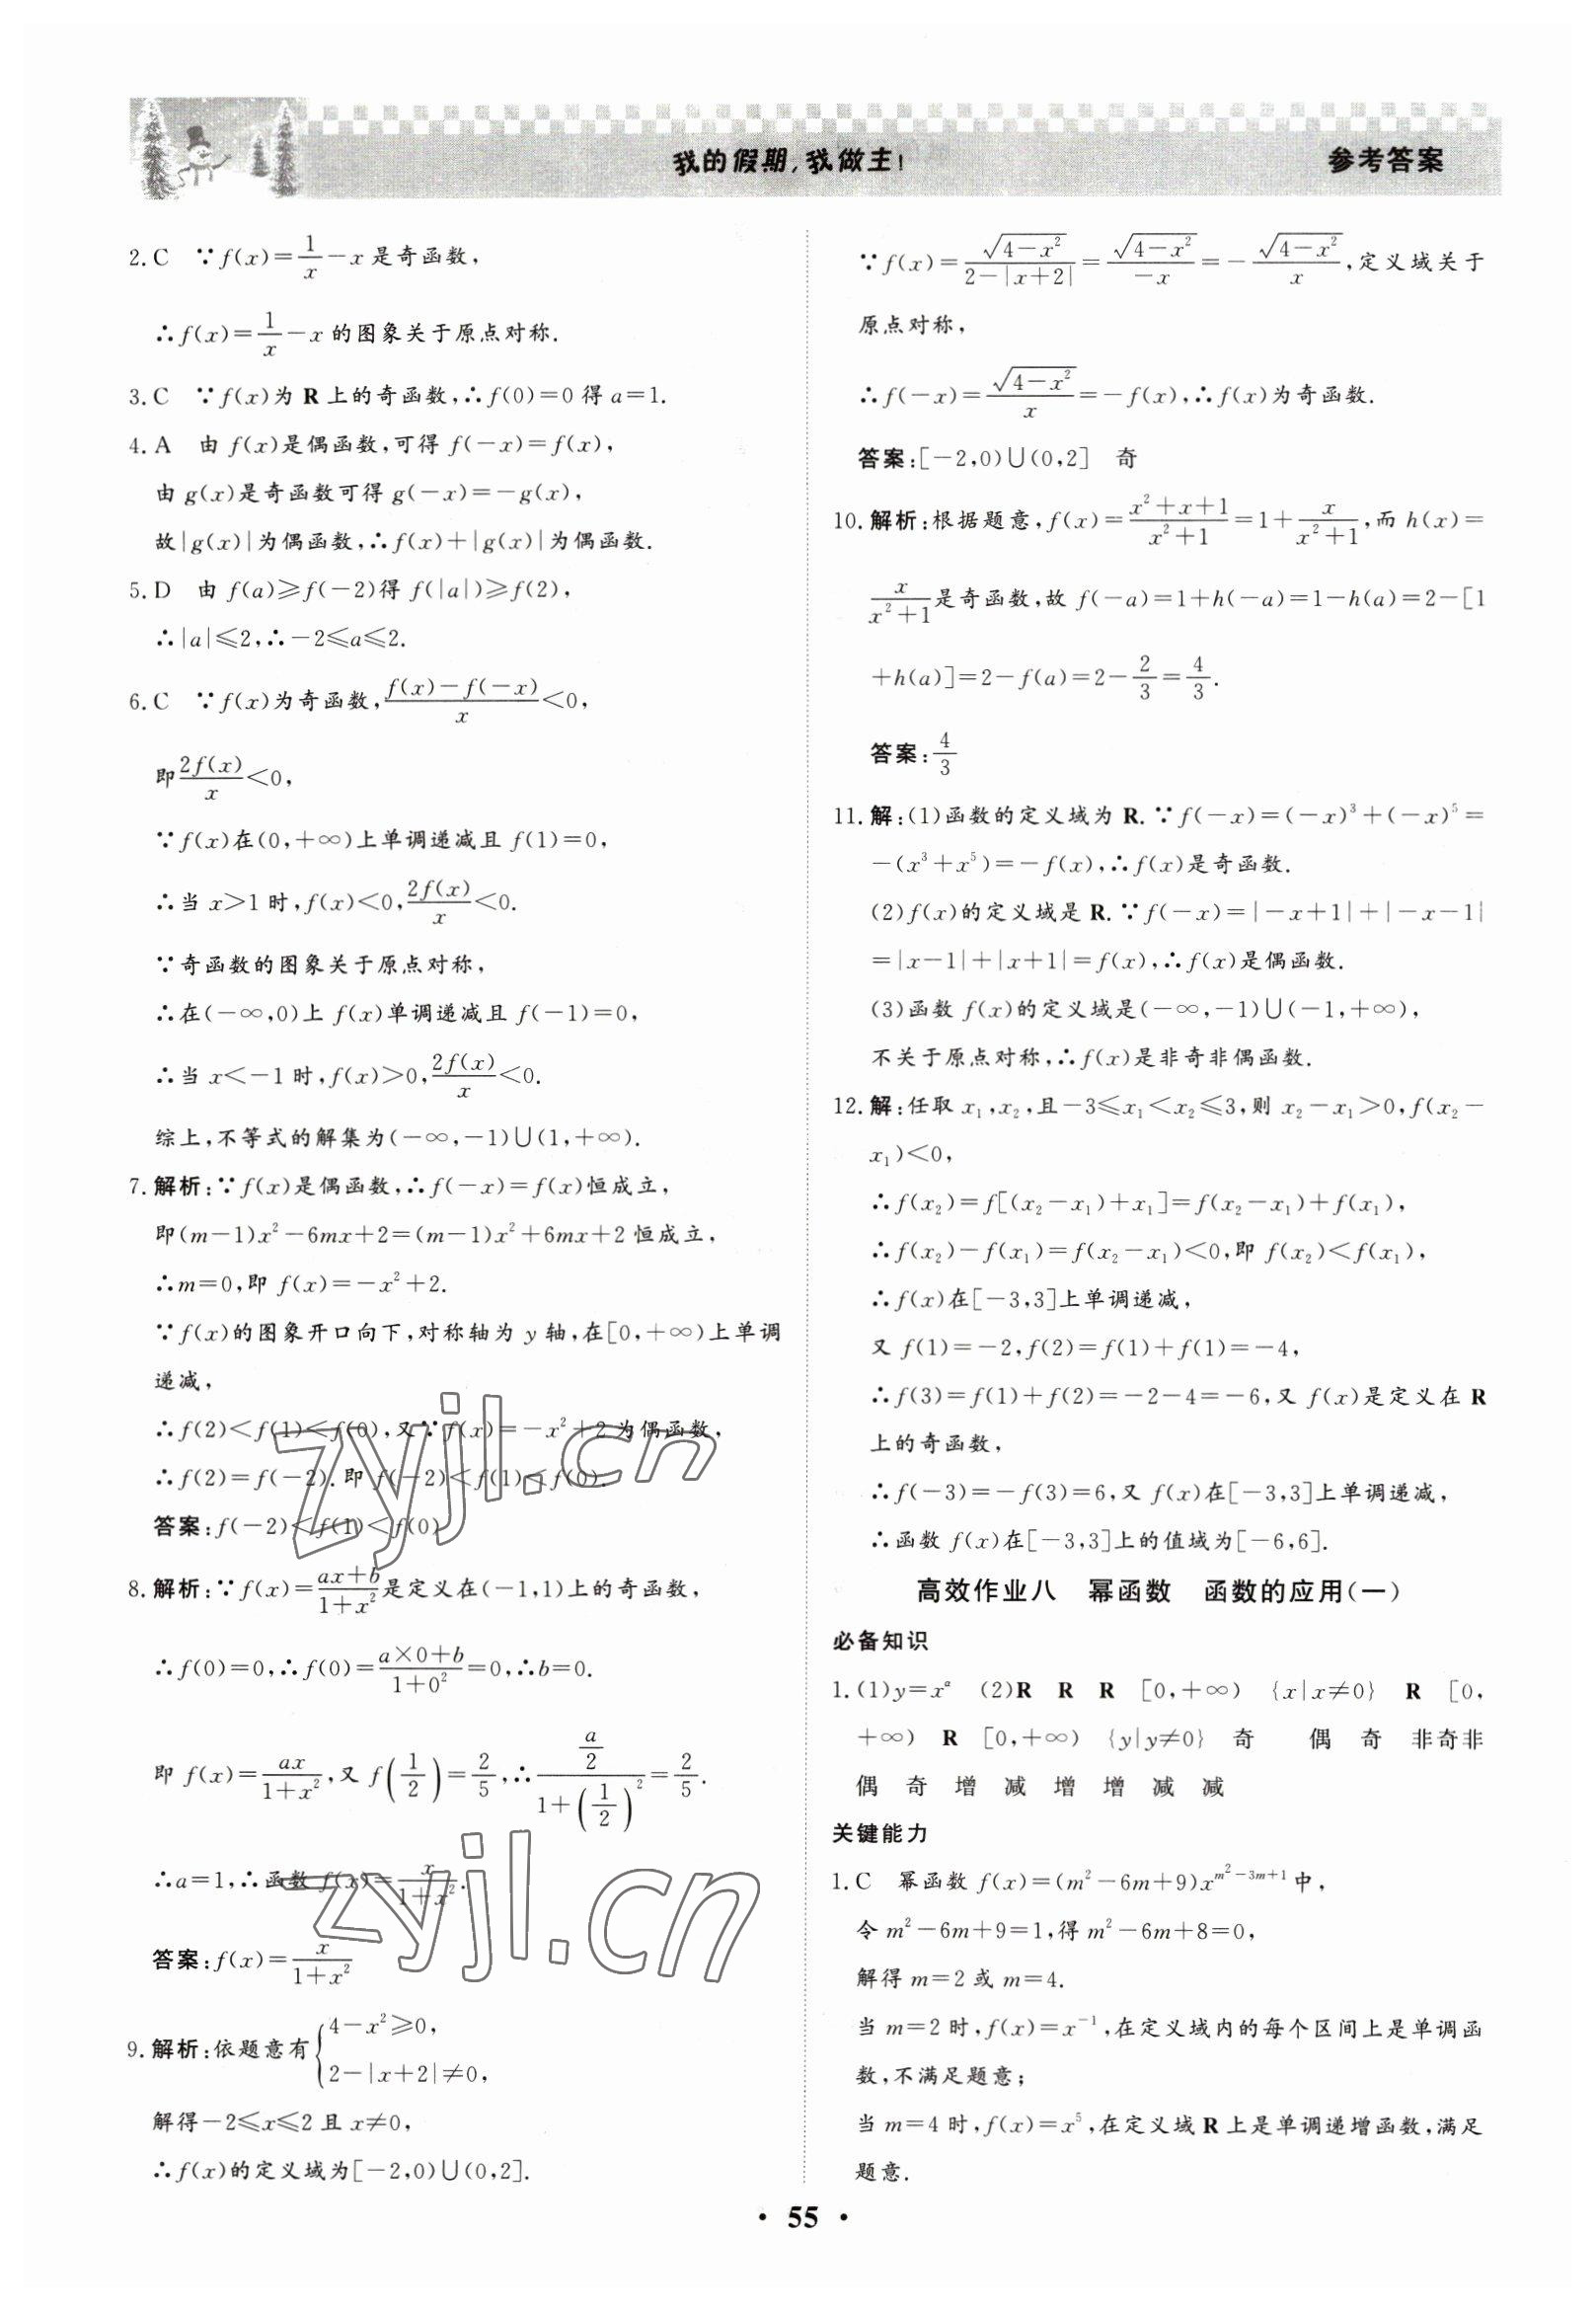 我的假期,我做主!
参考答案
2. C ∵f(x)=1/x-x是奇函数,
∴f(x)=1/x-x的图象关于原点对称.
3. C ∵f(x)为R上的奇函数,∴f(0)=0得a=1.
4. A 由f(x)是偶函数,可得f(-x)=f(x),
由g(x)是奇函数可得g(-x)=-g(x),
故|g(x)|为偶函数,∴f(x)+|g(x)|为偶函数.
5. D 由f(a)≥f(-2)得f(|a|)≥f(2),
∴|a|≤2,∴-2≤a≤2.
6. C ∵f(x)为奇函数,(f(x)-f(-x))/x<0,
即2f(x)/x<0,
∵f(x)在(0,+∞)上单调递减且f(1)=0,
∴当x>1时,f(x)<0,2f(x)/x<0.
∵奇函数的图象关于原点对称,
∴在(-∞,0)上f(x)单调递减且f(-1)=0,
∴当x<-1时,f(x)>0,2f(x)/x<0.
综上,不等式的解集为(-∞,-1)∪(1,+∞).
7. 解析:∵f(x)是偶函数,∴f(-x)=f(x)恒成立,
即(m-1)x²-6mx+2=(m-1)x²+6mx+2恒成立,
∴m=0,即f(x)=-x²+2.
∵f(x)的图象开口向下,对称轴为y轴,在[0,+∞)上单调
递减,
∴f(2)<f(1)<f(0),又∵f(x)=-x²+2为偶函数,
∴f(2)=f(-2).即f(-2)<f(1)<f(0).
答案:f(-2)<f(1)<f(0)
8. 解析:∵f(x)=(ax+b)/(1+x²)是定义在(-1,1)上的奇函数,
∴f(0)=0,∴f(0)=(a×0+b)/(1+0²)=0,∴b=0.
即f(x)=ax/(1+x²),又f(1/2)=2/5,∴(a/2)/(1+(1/2)²)=2/5.
∴a=1,∴函数f(x)=x/(1+x²).
答案:f(x)=x/(1+x²)
9. 解析:依题意有{4-x²≥0,
2-|x+2|≠0,
解得-2≤x≤2且x≠0,
∴f(x)的定义域为[-2,0)∪(0,2].
∵f(x)=√(4-x²)/(2-|x+2|)=√(4-x²)/(-x)=-√(4-x²)/x,定义域关于
原点对称,
∴f(-x)=√(4-x²)/x=-f(x),∴f(x)为奇函数.
答案:[-2,0)∪(0,2] 奇
10. 解析:根据题意,f(x)=(x²+x+1)/(x²+1)=1+x/(x²+1),而h(x)=
x/(x²+1)是奇函数,故f(-a)=1+h(-a)=1-h(a)=2-[1
+h(a)]=2-f(a)=2-2/3=4/3.
答案:4/3
11. 解:(1)函数的定义域为R.∵f(-x)=(-x)³+(-x)⁵=
-(x³+x⁵)=-f(x),∴f(x)是奇函数.
(2)f(x)的定义域是R.∵f(-x)=|-x+1|+|-x-1|
=|x-1|+|x+1|=f(x),∴f(x)是偶函数.
(3)函数f(x)的定义域是(-∞,-1)∪(-1,+∞),
不关于原点对称,∴f(x)是非奇非偶函数.
12. 解:任取x₁,x₂,且-3≤x₁<x₂≤3,则x₂-x₁>0,f(x₂-
x₁)<0,
∴f(x₂)=f[(x₂-x₁)+x₁]=f(x₂-x₁)+f(x₁),
∴f(x₂)-f(x₁)=f(x₂-x₁)<0,即f(x₂)<f(x₁),
∴f(x)在[-3,3]上单调递减,
又f(1)=-2,f(2)=f(1)+f(1)=-4,
∴f(3)=f(1)+f(2)=-2-4=-6,又f(x)是定义在R
上的奇函数,
∴f(-3)=-f(3)=6,又f(x)在[-3,3]上单调递减,
∴函数f(x)在[-3,3]上的值域为[-6,6].
高效作业八 幂函数 函数的应用(一)
必备知识
1. (1)y=xᵅ (2)R R R [0,+∞) {x|x≠0} R [0,
+∞) R [0,+∞) {y|y≠0} 奇 偶 奇 非奇非
偶 奇 增 减 增 增 减 减
关键能力
1. C 幂函数f(x)=(m²-6m+9)x^(m²-3m+1)中,
令m²-6m+9=1,得m²-6m+8=0,
解得m=2或m=4.
当m=2时,f(x)=x⁻¹,在定义域内的每个区间上是单调函
数,不满足题意;
当m=4时,f(x)=x⁵,在定义域R上是单调递增函数,满足
题意.
zyjl.cn
zyjl.cn
• 55 •